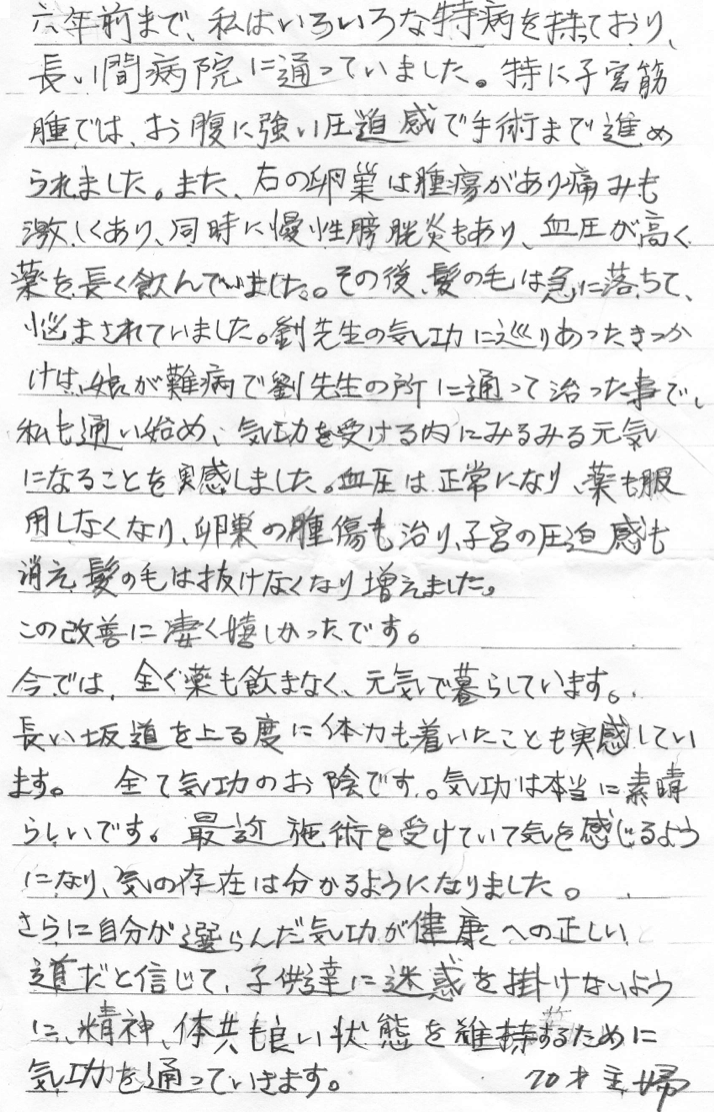 六年前まで、私はいろいろな特病を持っており、
長い間病院に通っていました。特に子宮筋
腫では、お腹に強い圧迫感で手術まで進め
られました。また、右の卵巣は腫瘍があり痛みも
激しくあり、同時に慢性膀胱炎もあり、血圧が高く
薬を長く飲んでいました。その後、髪の毛は急に落ちて、
悩まされていました。劉先生の気功に巡りあったきっか
けは、娘が難病で劉先生の所に通って治った事で、
私も通い始め、気功を受ける内にみるみる元気
になることを実感しました。血圧は正常になり、薬も服
用しなくなり、卵巣の腫傷も治り、子宮の圧迫感も
消え、髪の毛は抜けなくなり増えました。
この改善に凄く嬉しかったです。
今では、全ぐ薬も飲まなく、元気で暮らしています。
長い坂道を上る度に体力も着いたことも実感してい
ます。 全て気功のお陰です。気功は本当に素晴
らしいです。最近施術を受けていて気を感じるよう
になり、気の存在は分かるようになりました。
さらに自分が選らんだ気功が健康への正しい
道だと信じて、子供達に迷惑を掛けないよう
に、精神、体共も良い状態を維持するために
気功を通っていきます。 70才主婦